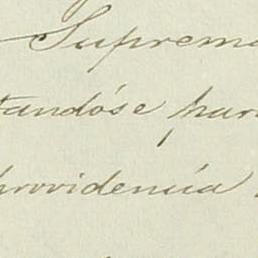 Suprema
tandóse para
providencia